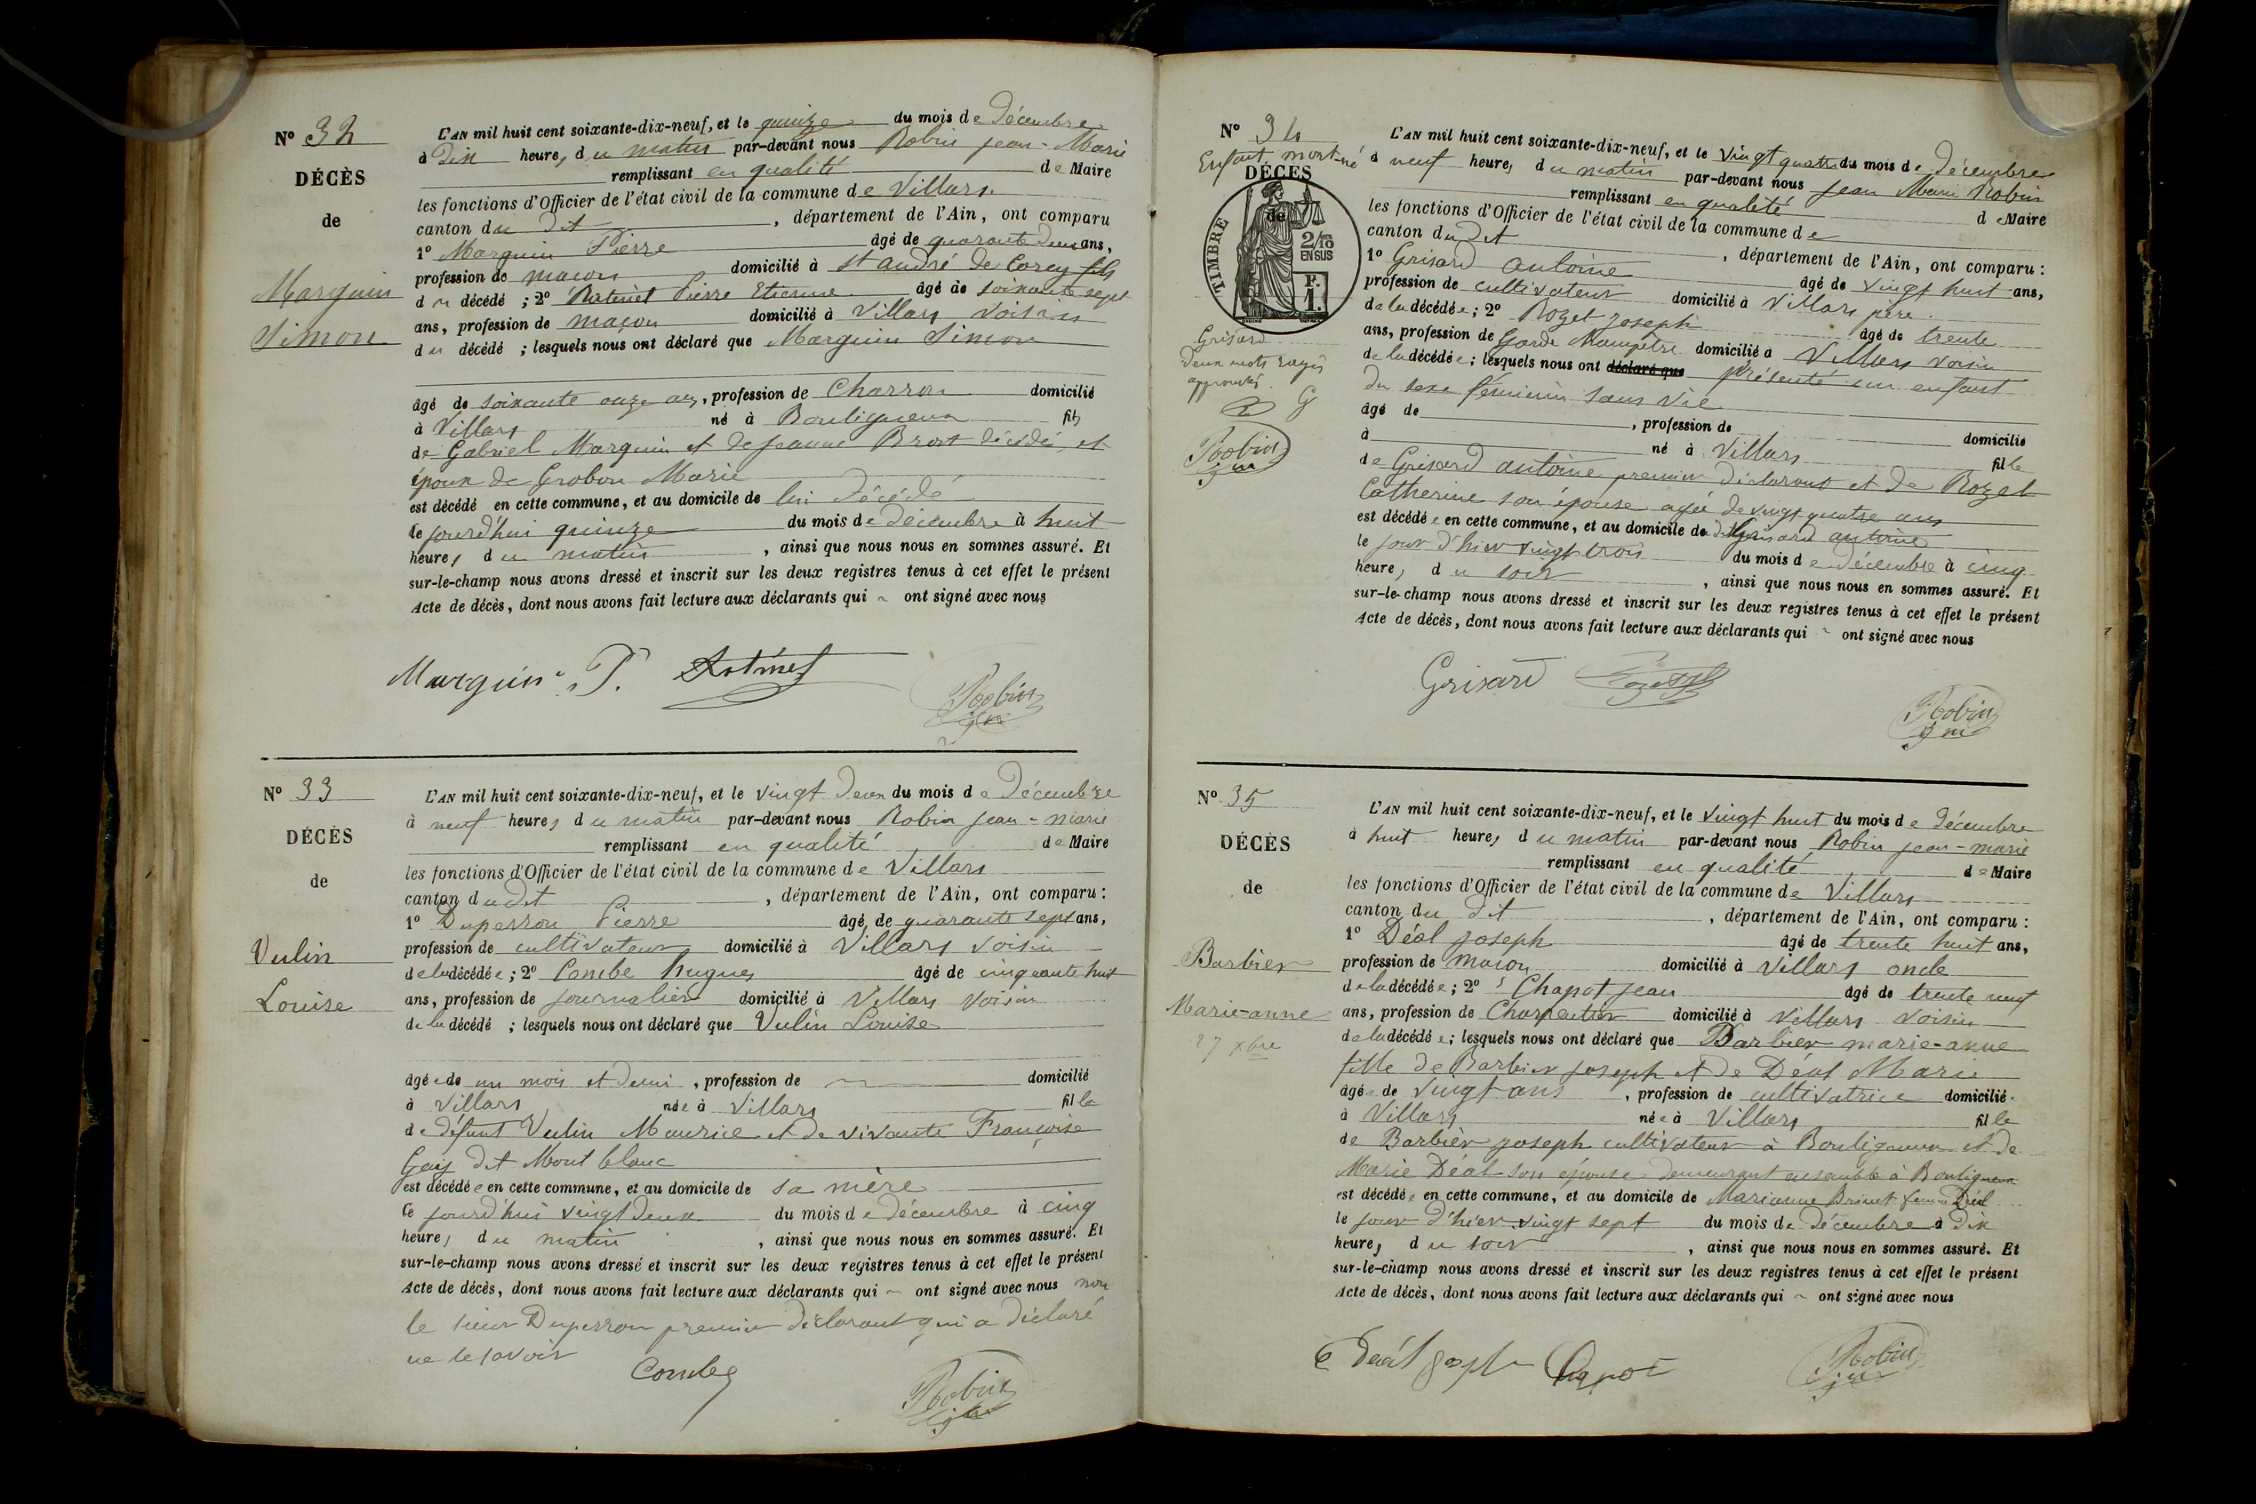 N° 32
DÉCÈS
de
Marguin
Simon
L'AN mil huit cent soixante-dix-neuf, et le quinze du mois de Décembre
à Dix heures du matin par-devant nous Robin Jean-Marie
remplissant en qualité de Maire
les fonctions d'Officier de l'état civil de la commune de Villars
canton du dit, département de l'Ain, ont comparu
1° Marguin Pierre âgé de quarante deux ans,
profession de maçon domicilié à St André de Corcy fils
du décédé ; 2° Pierre Etienne âgé de soixante sept
ans, profession de maçon domicilié à Villars voisin
du décédé ; lesquels nous ont déclaré que Marguin Simon
âgé de soixante onze ans, profession de Charron domicilié
à Villars né à Bouligneux fils
de Gabriel Marguin et de Jeanne Brost décédés, et
époux de Grobon Marie
est décédé en cette commune, et au domicile de lui Décédé
le jourd'hui quinze du mois de décembre à huit
heures du matin, ainsi que nous nous en sommes assuré. Et
sur-le-champ nous avons dressé et inscrit sur les deux registres tenus à cet effet le présent
Acte de décès, dont nous avons fait lecture aux déclarants qui ~ ont signé avec nous
Marguin P. Robin
N° 33
DÉCÈS
de
Vulin
Louise
L'AN mil huit cent soixante-dix-neuf, et le vingt Deux du mois de Décembre
à neuf heures du matin par-devant nous Robin Jean-Marie
remplissant en qualité de Maire
les fonctions d'Officier de l'état civil de la commune de Villars
canton du dit, département de l'Ain, ont comparu :
1° Duperron Pierre âgé de quarante sept ans,
profession de cultivateur domicilié à Villars voisin
de la décédée ; 2° Combe Hugues âgé de cinquante huit
ans, profession de journalier domicilié à Villars voisin
de la décédé ; lesquels nous ont déclaré que Vulin Louise
âgée de un mois et demi, profession de ~ domicilié
à Villars née à Villars fille
de défunt Vulin Maurice et de vivante Françoise
Gay dit Mont blanc
est décédée en cette commune, et au domicile de sa mère
le jourd'hui vingt deux du mois de décembre à cinq
heures du matin, ainsi que nous nous en sommes assuré. Et
sur-le-champ nous avons dressé et inscrit sur les deux registres tenus à cet effet le présent
Acte de décès, dont nous avons fait lecture aux déclarants qui ~ ont signé avec nous non
le sieur Duperron premier déclarant qui a déclaré
ne le savoir
Combe Robin
N° 34
Enfant mort-né
DÉCÈS
de
TIMBRE
2/10
EN SUS
F.
1.
Grisard
Deux mots rayés
approuvés. G
Robin
L'AN mil huit cent soixante-dix-neuf, et le vingt quatre du mois de Décembre
à neuf heures du matin par-devant nous Jean Marie Robin
remplissant en qualité de Maire
les fonctions d'Officier de l'état civil de la commune de
canton du dit, département de l'Ain, ont comparu :
1° Grisard antoine âgé de vingt huit ans,
profession de cultivateur domicilié à Villars père
de la décédée ; 2° Rozet Joseph âgé de trente
ans, profession de Garde champêtre domicilié à Villars voisin
de la décédée ; lesquels nous ont déclaré que présenté un enfant
du sexe féminin sans vie
âgé de, profession de domicilié
à né à Villars fille
de Grisard antoine premier déclarant et de Rozet
Catherine son épouse agée de vingt quatre ans
est décédée en cette commune, et au domicile de dit Grisard antoine
le jour d'hier vingt trois du mois de décembre à cinq
heures du soir, ainsi que nous nous en sommes assuré. Et
sur-le-champ nous avons dressé et inscrit sur les deux registres tenus à cet effet le présent
Acte de décès, dont nous avons fait lecture aux déclarants qui ~ ont signé avec nous
Grisard Rozet Robin
N° 35
DÉCÈS
de
Barbier
Marie-anne
27 xbre
L'AN mil huit cent soixante-dix-neuf, et le vingt huit du mois de décembre
à huit heures du matin par-devant nous Robin Jean-Marie
remplissant en qualité de Maire
les fonctions d'Officier de l'état civil de la commune de Villars
canton du dit, département de l'Ain, ont comparu :
1° Déal Joseph âgé de trente huit ans,
profession de maçon domicilié à Villars oncle
de la décédée ; 2° Chapot Jean âgé de trente neuf
ans, profession de Charpentier domicilié à Villars voisin
de la décédée ; lesquels nous ont déclaré que Barbier marie-anne
fille de Barbier Joseph et de Déal Marie
âgée de vingt ans, profession de cultivatrice domicilié
à Villars née à Villars fille
de Barbier Joseph cultivateur à Bouligneux et de
Marie Déal son épouse demeurant ensemble à Bouligneux
est décédée en cette commune, et au domicile de Marianne Brunet femme Déal
le jour d'hier vingt sept du mois de Décembre à Dix
heures du soir, ainsi que nous nous en sommes assuré. Et
sur-le-champ nous avons dressé et inscrit sur les deux registres tenus à cet effet le présent
Acte de décès, dont nous avons fait lecture aux déclarants qui ~ ont signé avec nous
Chapot Robin